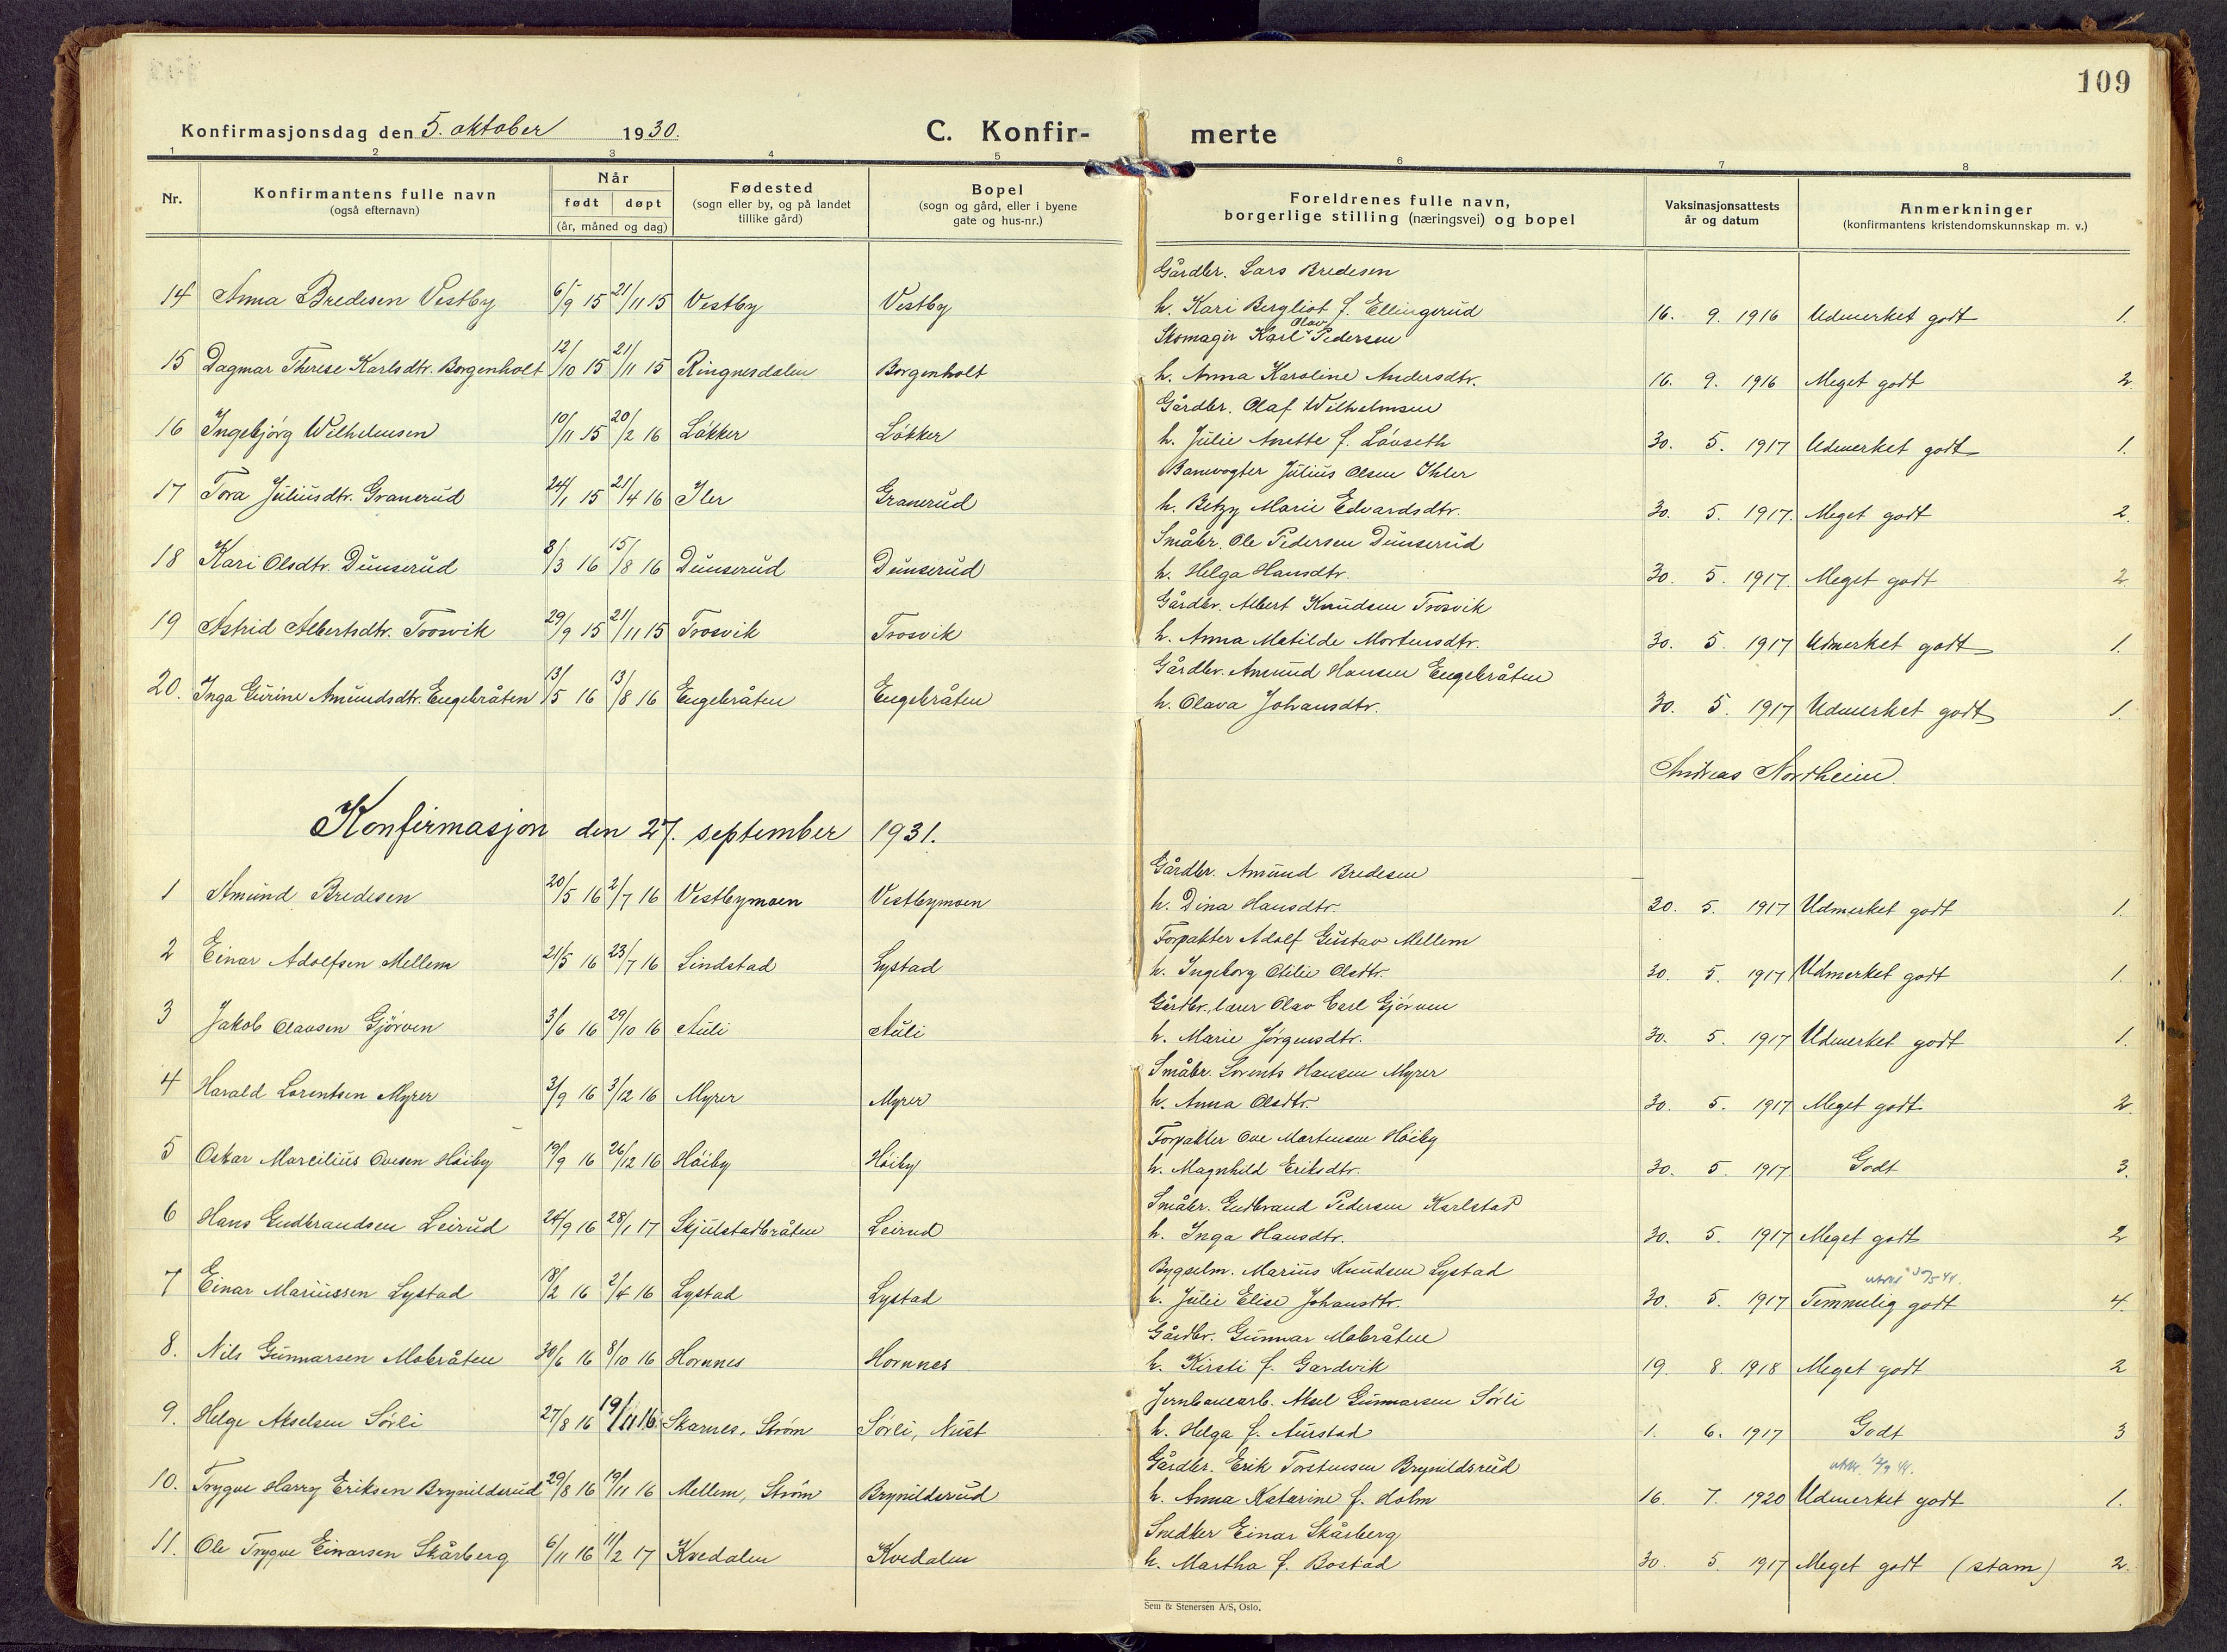 109
Konfirmasjonsdag den 5. oktober 1930.
C. Konfir- merte
1 2 3 4 5 6 7 8
Nr.
Konfirmantens fulle navn
(også efternavn)
Når
født døpt
(år, måned og dag)
Fødested
(sogn eller by, og på landet
tillike gård)
Bopel
(sogn og gård, eller i byene
gate og hus-nr.)
Foreldrenes fulle navn,
borgerlige stilling (næringsvei) og bopel
Vaksinasjonsattests
år og datum
Anmerkninger
(konfirmantens kristendomskunnskap m. v.)
Gårdbr. Lars Bredesen
14 Anna Bredesen Vestby 6/9 15 21/11 15 Vestby Vestby h. Kari Bergliot f. Ellingerud 16. 9. 1916 Udmerket godt 1.
Skomager Karl Olav Pedersen
15 Dagmar Therese Karlsdtr. Borgenholt 12/10 15 21/11 15 Ringnesdalen Borgenholt h. Anna Karoline Andersdtr. 16. 9. 1916 Meget godt 2
Gårdbr. Olaf Wilhelmsen
16 Ingebjörg Wilhelmsen 10/11 15 20/2 16 Løkker Løkker h. Julie Anette f. Lövseth 30. 5. 1917 Udmerket godt 1.
Banevogter Julius Olsen Ihler
17 Tora Juliusdtr. Granerud 24/1 15 21/4 16 Iler Granerud h. Betzy Marie Edvardsdtr. 30. 5. 1917. Meget godt 2.
Småbr. Ole Pedersen Dunserud
18 Kari Olsdtr. Dunserud 8/3 16 15/8 16 Dunserud Dunserud h. Helga Hansdtr. 30. 5. 1917. Meget godt 2.
Gårdbr. Albert Knudsen Trosvik
19 Astrid Albertsdtr. Trosvik 29/9 15 21/11 15 Trosvik Trosvik h. Anna Matilde Mortensdtr. 30. 5. 1917 Udmerket godt 1.
Gårdbr. Amund Hansen Engebråten
20. Inga Gurine Amundsdtr. Engebråten 13/5 16 13/8 16 Engebråten Engebråten h. Olava Johansdtr. 30. 5. 1917 Udmerket godt 1.
Andreas Northeim.
Konfirmasjon den 27. september 1931.
Gårdbr. Amund Bredesen
1 Amund Bredesen 20/5 16 2/7 16 Vestbymoen Vestbymoen h. Dina Hansdtr. 20. 5. 1917 Udmerket godt 1.
Forpakter Adolf Gustav Mellem
2 Einar Adolfsen Mellem 21/5 16 23/7 16 Lindstad Lystad h. Ingeborg Otilie Olsdtr. 30. 5. 1917 Udmerket godt 1.
Gårdbr., lærer Olav Carl Gjörven
3 Jakob Olavsen Gjörven 3/6 16 29/10 16 Auli Auli h. Marie Jørgensdtr. 30. 5. 1917 Udmerket godt 1.
Småbr. Lorents Hansen Myrer
4 Harald Lorentsen Myrer 3/9 16 3/12 16 Myrer Myrer h. Anna Olsdtr. 30. 5. 1917 Meget godt 2.
Forpakter Ove Martinsen Höiby
5 Oskar Marcilius Ovesen Höiby 19/9 16 26/12 16 Höiby Höiby h. Magnhild Eriksdtr. 30. 5. 1917 Godt 3.
Småbr. Gudbrand Pedersen Karlstad
6 Hans Gudbrandsen Leirud 24/9 16 28/1 17 Skjulstadbråten Leirud h. Inga Hansdtr. 30. 5. 1917 Meget godt 2
Bygselm. Marius Knudsen Lystad
7 Einar Mariussen Lystad 18/2 16 2/4 16 Lystad Lystad h. Julie Elise Johansdtr. 30. 5. 1917 Temmelig godt 4.
Gårdbr. Gunnar Mobråten
8. Nils Gunnarsen Mobråten 30/6 16 8/10 16 Hornnes Hornnes h. Kirsti f. Gardvik 19. 8. 1918 Meget godt 2
Jernbanearb. Aksel Gunnarsen Sörli
9. Helge Akselsen Sörli 27/8 16 19/11 16 Skarnes, Strøm Sörli, Nust h. Helga f. Aurstad 1. 6. 1917 Godt 3
Gårdbr. Erik Torstensen Brynildsrud
10. Trygve Harry Eriksen Brynildsrud 29/8 16 19/11 16 Mellem, Strøm Brynildsrud h. Anna Katarine f. Holm 16. 7. 1920 Udmerket godt 1.
Snedker Einar Skårberg
11. Ole Trygve Einarsen Skårberg 6/11 16 11/2 17 Kvedalen Kvedalen h. Martha f. Bostad 30. 5. 1917 Meget godt (stam) 2.
Sem & Stenersen A/S, Oslo.